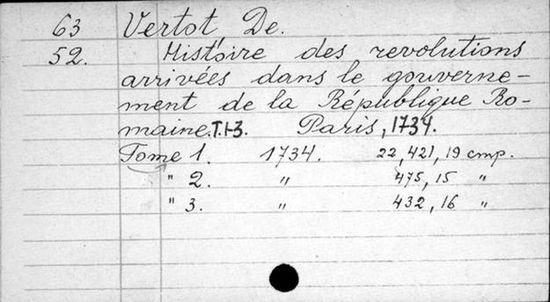 63 Vertot, De.
52. Histoire des revolutions
arrivées dans le gouverne-
ment de la République Ro-
maine. T.1-3. Paris, 1734.
Tome 1. 1734. 22, 421, 19 стр.
" 2. " 475, 15 "
" 3. " 432, 16 "